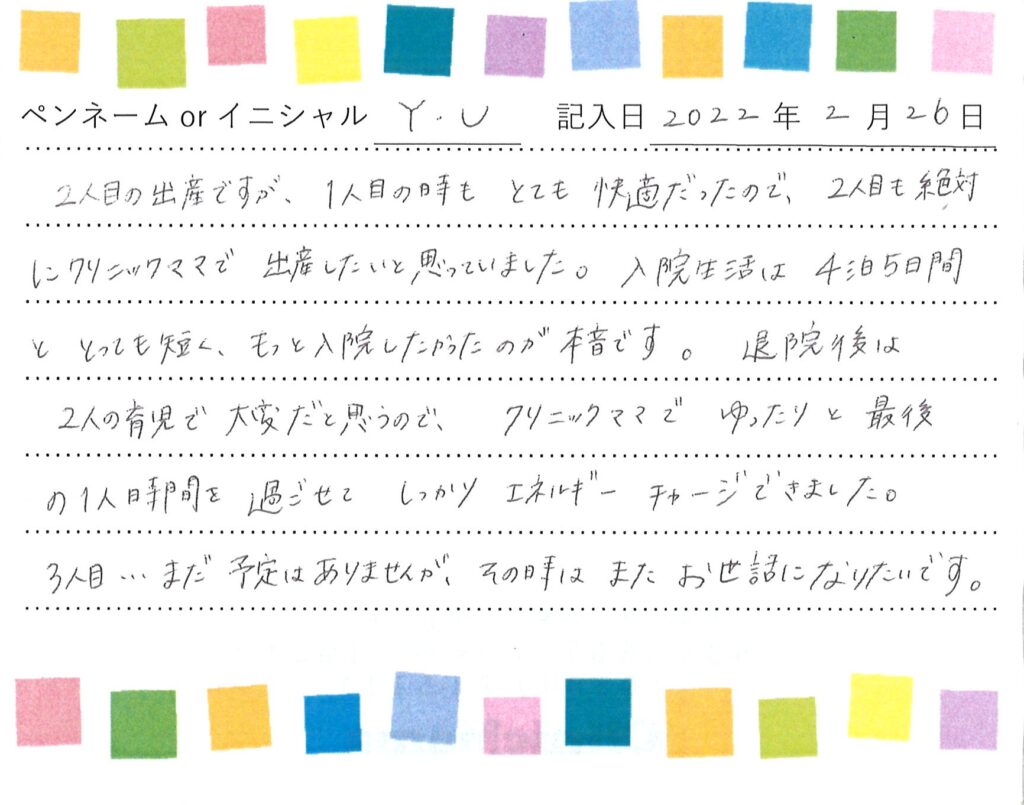 ペンネーム or イニシャル Y.U 記入日 2022 年 2 月 26 日
2人目の出産ですが、1人目の時も とても 快適だったので、2人目も絶対
にクリニックママで 出産したいと思っていました。入院生活は 4泊5日間
と とっても短く、もっと入院したかったのが本音です。 退院後は
2人の育児で 大変だと思うので、 クリニックママで ゆったりと 最後
の1人時間を 過ごせて しっかり エネルギー チャージできました。
3人目…まだ 予定はありませんが、その時は また お世話になりたいです。